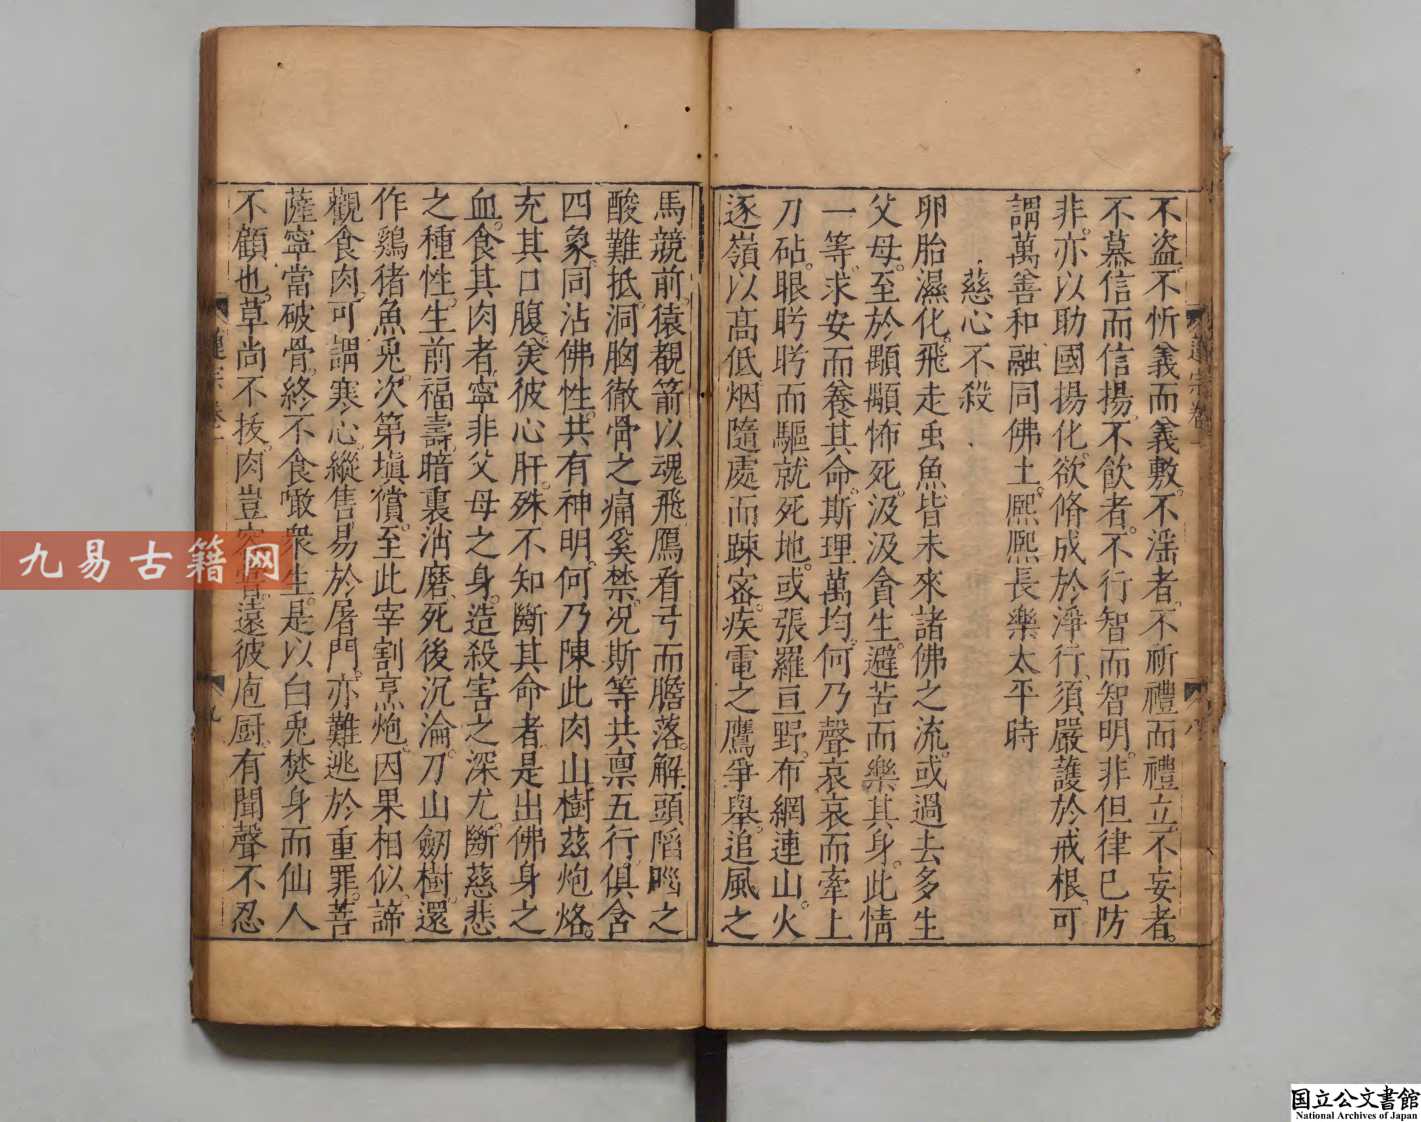 不盜。不忻義而義敷。不滛者。不祈禮而禮立。不妄者。
不慕信而信揚。不飲者。不行智而智明。非但律已防
非。亦以助國揚化。欲脩成於淨行。須嚴護於戒根。可
謂萬善和融同佛土。熈熈長樂太平時
慈心不殺
卵胎濕化。飛走虫魚皆未來諸佛之流。或過去多生
父母。至於顒顒怖死。汲汲貪生。避苦而樂其身。此情
一等。求安而養其命。斯理萬均。何乃聲哀哀而牽上
刀砧。眼盻盻而驅就死地。或張羅亘野。布網連山。火
逐嶺以髙低。烟隨處而踈密。疾電之鷹爭舉。追風之
馬競前。猿覩箭以魂飛。鴈看弓而膽落。解頭陷腦之
酸難抵。洞胸徹骨之痛奚禁。况斯等共禀五行。俱含
四象。同沾佛性。共有神明。何乃陳此肉山樹茲炮烙。
充其口腹。灸彼心肝。殊不知斷其命者。是出佛身之
血。食其肉者。寧非父母之身。造殺害之深尤。斷慈悲
之種性。生前福壽。暗裏消磨。死後沉淪。刀山劒樹。還
作鶏猪魚兎。次第塡償。至此宰割烹炮。因果相似。諦
觀食肉。可謂寒心。縱售易於屠門。亦難逃於重罪。菩
薩寧當破骨。終不食噉衆生。是以白兎焚身而仙人
不顧也。草尚不拔。肉豈容甞。遠彼庖厨。有聞聲不忍
蓮宗卷一
八
蓮宗卷一
九
九易古籍网
国立公文書館
National Archives of Japan